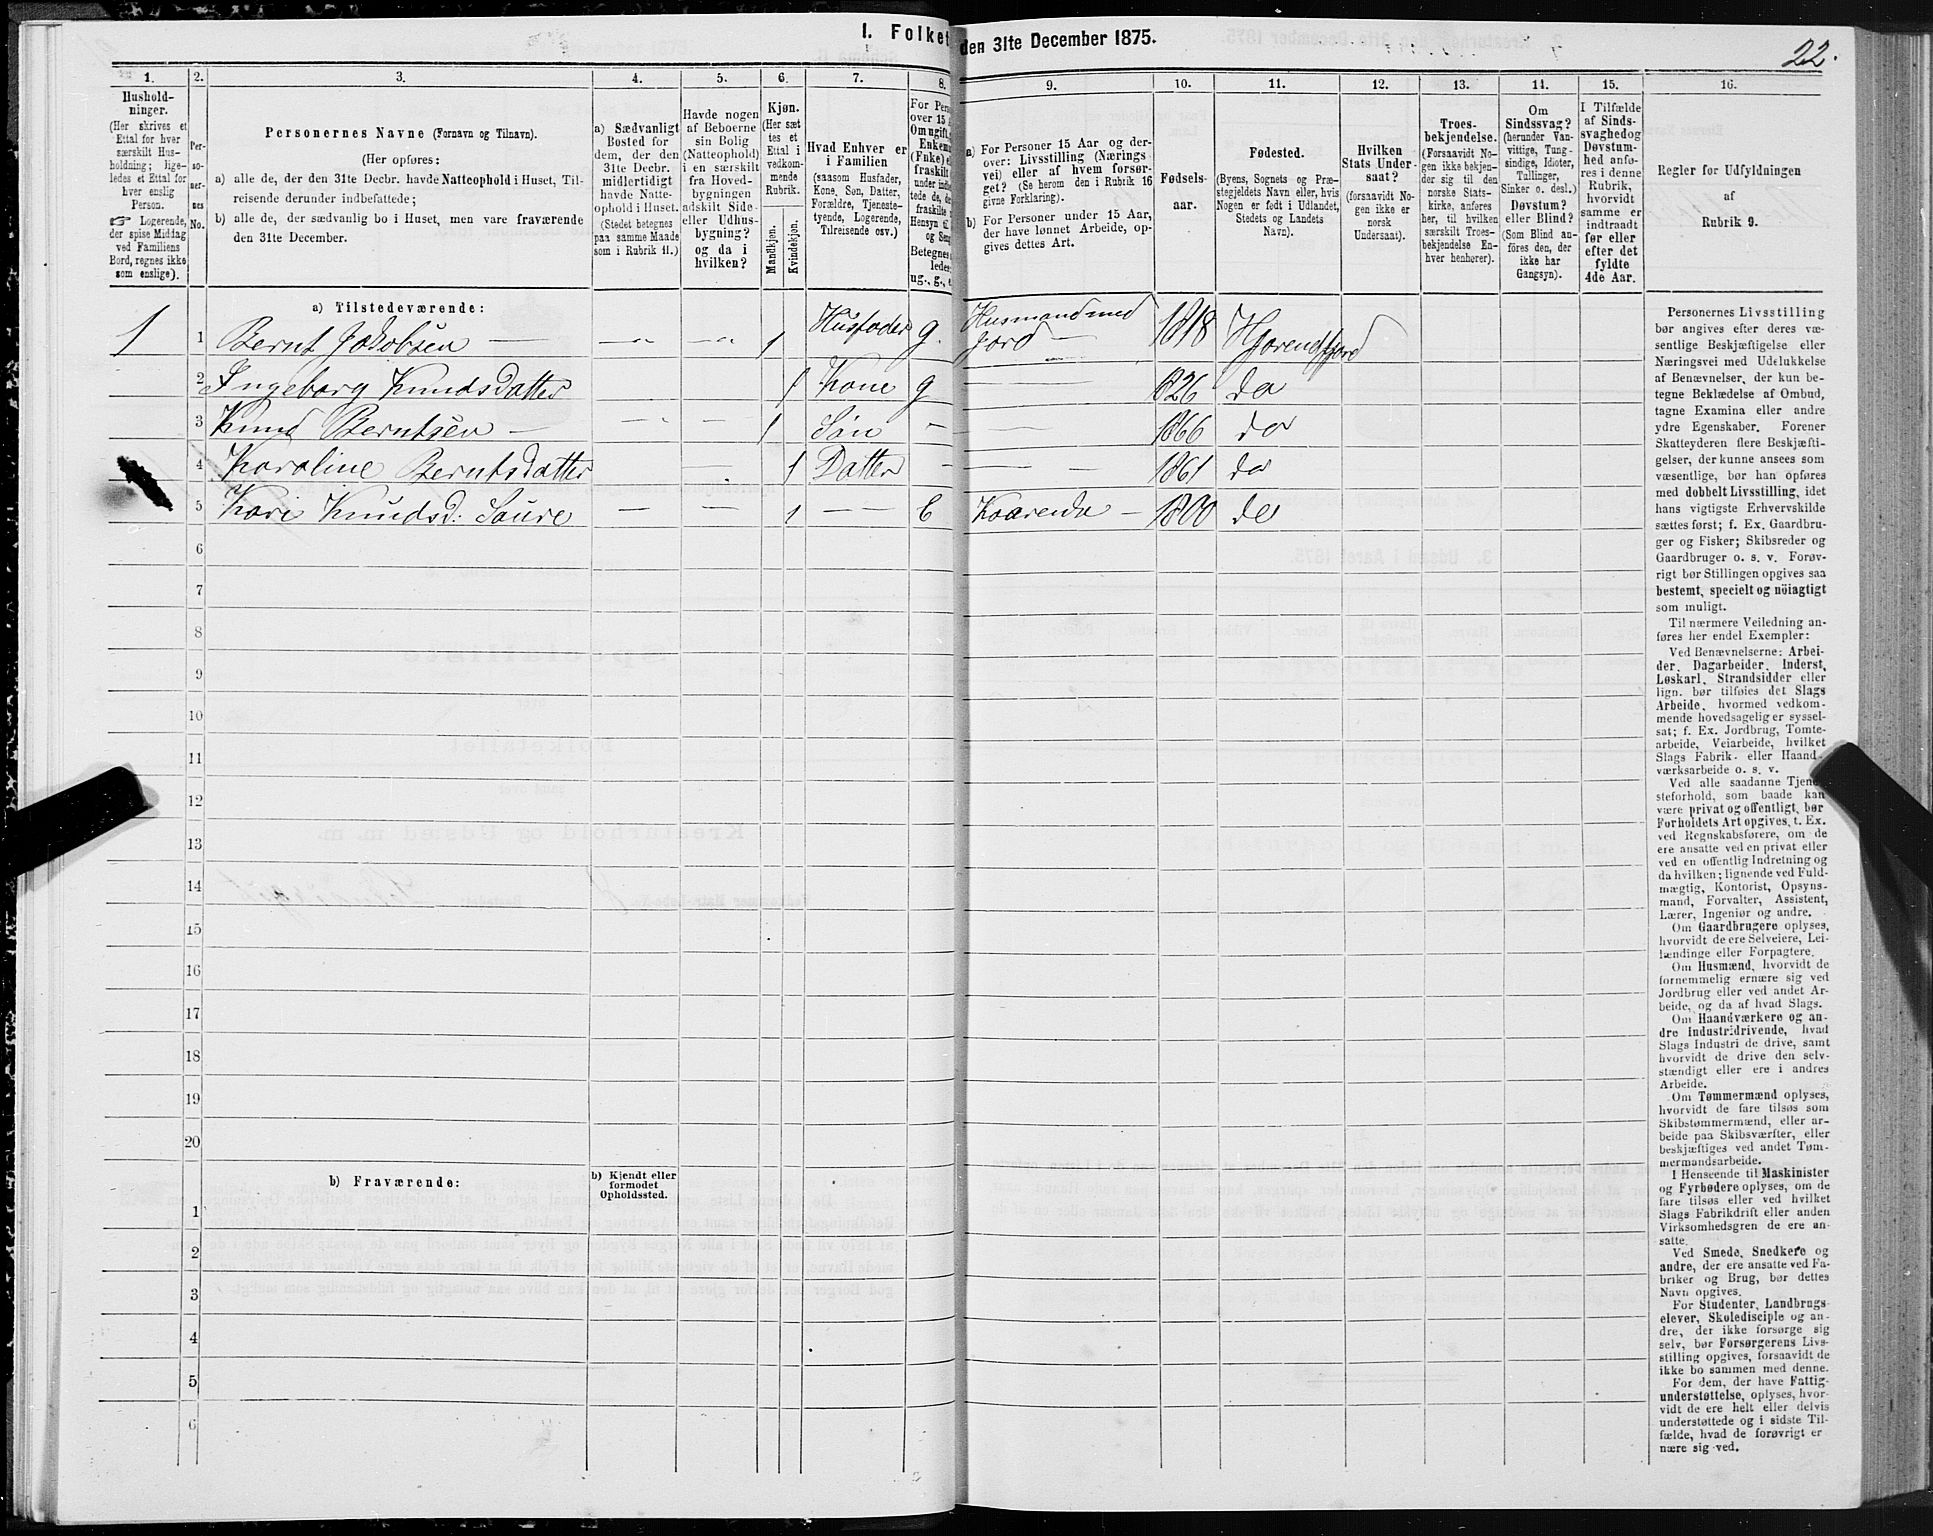 I. Folket
den 31te December 1875.
22.
1.
2.
3.
4.
5.
6.
7.
8.
9.
10.
11.
12.
13.
14.
15.
16.
Hushold-
ninger.
(Her skrives et
Ettal for hver
særskilt Hus-
holdning; lige-
ledes et Ettal for
hver enslig
Person.
☞ Logerende,
der spise Middag
ved Familiens
Bord, regnes ikke
som enslige).
Per-
so-
ner-
nes
No.
Personernes Navne (Fornavn og Tilnavn).
(Her opføres:
a) alle de, der den 31te Decbr. havde Natteophold i Huset, Til-
reisende derunder indbefattede;
b) alle de, der sædvanlig bo i Huset, men vare fraværende
den 31te December.
a) Sædvanligt
Bosted for
dem, der den
31te Decbr.
midlertidigt
havde Natte-
ophold i Huset.
(Stedet betegnes
paa samme Maade
som i Rubrik 11.)
Havde nogen
af Beboerne
sin Bolig
(Natteophold)
i en særskilt
fra Hoved-
bygningen
adskilt Side-
eller Udhus-
bygning?
og da i
hvilken?
Kjøn.
(Her sæt
tes et
Ettal i
vedkom-
mende
Rubrik.
Mandkjøn.
Kvindekjøn.
Hvad Enhver er
i Familien
(saasom Husfader,
Kone, Søn, Datter,
Forældre, Tjeneste-
tyende, Logerende,
Tilreisende osv.)
For Pers
over 15 A
Om ugift,
Enkem
(Fnke) e
fraskilt
under indbe
tede de, de
fraskilte
Hensyn til
og Sen
Betegnes
ledes:
ug., g., e
a) For Personer 15 Aar og der-
over: Livsstilling (Nærings
vei) eller af hvem forsør-
get? (Se herom den i Rubrik 16
givne Forklaring).
b) For Personer under 15 Aar,
der have lønnet Arbeide, op-
gives dettes Art.
Fødsels-
aar.
Fødested.
(Byens, Sognets og Præ-
stegjeldets Navn eller, hvis
Nogen er født i Udlandet,
Stedets og Landets
Navn).
Hvilken
Stats Under-
saat?
(forsaavidt No-
gen ikke er
norsk
Undersaat).
Troes-
bekjendelse.
(Forsaavidt No-
gen ikke bekjen-
der sig til den
norske Stats-
kirke, anføres
her, til hvilken
særskilt Troes-
bekjendelse En-
hver henhører).
Om
Sindssvag?
(herunder Van-
vittige, Tung-
sindige, Idioter,
Tullinger,
Sinker o. desl.)
Døvstum?
eller Blind?
(Som Blind an-
føres den, der
ikke har
Gangsyn).
I Tilfælde
af Sinds-
svaghed og
Døvstum-
hed anfø-
res i denne
Rubrik,
hvorvidt
samme er
indtraadt
før eller
efter det
fyldte
4de Aar.
Regler for Udfyldningen
af
Rubrik 9.
a) Tilstedeværende:
1 1 Bernt Jakobsen — 1 Husfader g. Husmand med Jord — 1818 Hjorendfjord
2 Ingeborg Knudsdatter 1 Kone g — 1826 do
3 Knud Berntsen — 1 Søn — 1866 do
4 Karoline Berntsdatter 1 Datter — 1861 do
5 Kari Knudsd: Saure — — 1 — — E 1800 do
6
7
8
9
10
11
12
13
14
15
16
17
18
19
20
b) Fraværende:
b) Kjendt eller
formodet
Opholdssted.
1
2
3
4
5
6
Personernes Livsstilling
bør angives efter deres væ-
sentlige Beskjæftigelse eller
Næringsvei med Udelukkelse
af Benævnelser, der kun be-
tegne Beklædelse af Ombud,
tagne Examina eller andre
ydre Egenskaber. Forener
Skatteyderen flere Beskjæfti-
gelser, der kunne ansees som
væsentlige, bør han opføres
med dobbelt Livsstilling, idet
hans vigtigste Erhvervskilde
sættes først; f. Ex. Gaardbru-
ger og Fisker; Skibsreder og
Gaardbruger o. s. v. Forøv-
rigt bør Stillingen opgives saa
bestemt, specielt og nöiagtigt
som muligt.
Til nærmere Veiledning an-
føres her endel Exempler:
Ved Benævnelserne: Arbei-
der, Dagarbeider, Inderst,
Løskarl, Strandsidder eller
lign. bør tilføies det Slags
Arbeide, hvormed vedkom-
mende hovedsagelig er syssel-
sat; f. Ex. Jordbrug, Tomte-
arbeide, Veiarbeide, hvilket
Slags Fabrik- eller Haand-
værksarbeide o. s. v.
Ved alle saadanne Tjene-
steforhold, som baade kan
være privat og offentligt, bør
Forholdets Art opgives, t. Ex.
ved Regnskabsførere, om de
ere ansatte ved en privat eller
ved en offentlig Indretning og
da hvilken; lignende ved Fuld-
mægtig, Kontorist, Opsyns-
mand, Forvalter, Assistent,
Lærer, Ingeniør og andre.
Om Gaardbrugere oplyses,
hvorvidt de ere Selveiere, Lei-
lændinge eller Forpagtere.
Om Husmænd, hvorvidt de
fornemmelig ernære sig ved
Jordbrug eller ved andet Ar-
beide, og da af hvad Slags.
Om Haandværkere og an-
dre Industridrivende, hvad
Slags Industri de drive, samt
hvorvidt de drive den selv-
stændigt eller ere i andres
Arbeide.
Om Tømmermænd oplyses,
hvorvidt de fare tilsøs som
Skibstømmermænd, eller ar-
beide paa Skibsværfter, eller
beskjæftiges ved andet Tøm-
mermandsarbeide.
I Henseende til Maskinister
og Fyrbødere oplyses, om de
fare tilsøs eller ved hvilket
Slags Fabrikdrift eller anden
Virksomhedsgren de ere an-
satte.
Ved Smede, Snedkere og
andre, der ere ansatte ved Fa-
briker og Brug, bør dettes
Navn opgives.
For Studenter, Landbrugs-
elever, Skoledisciple og an-
dre, der ikke forsørge sig
selv, bør Forsørgerens Livs-
stilling opgives, forsaavidt de
ikke bo sammen med denne.
For dem, der have Fattig-
understøttelse, oplyses, hvor-
vidt de ere helt eller delvis
understøttede og i sidste Til-
fælde, hvad de forøvrigt er
nære sig ved.